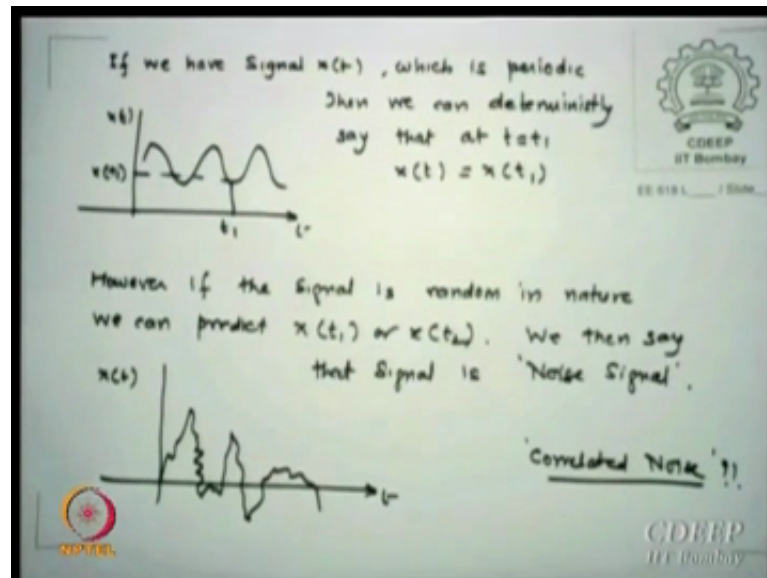 If we have Signal x(t), which is periodic
then we can deterministly
say that at t=t1
x(t) = x(t1)
x(t)
x(t1)
t1
t
CDEEP
IIT Bombay
EE 618 L____ / Slide____
However if the signal is random in nature
we can predict x(t1) or x(t2). We then say
that Signal is 'Noise Signal'.
x(t)
t
'Correlated Noise' !!
NPTEL
CDEEP
IIT Bombay